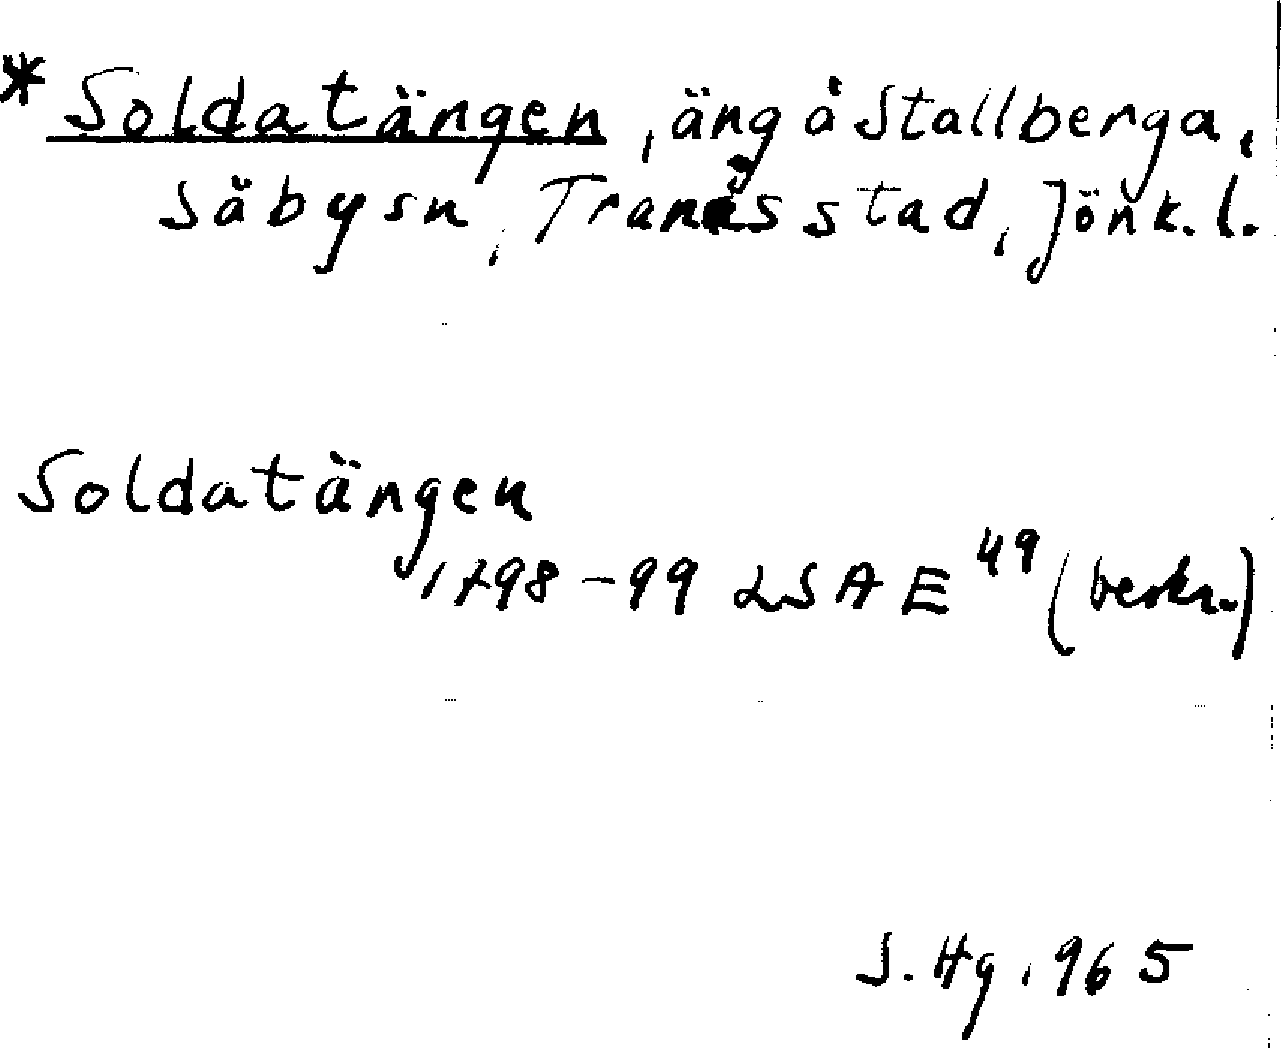 * Soldatängen, äng å Stallberga,
Säbysn, Tranås stad, Jönk. l.
Soldatängen
1798-99 LSA E 49 (beskr.)
S. Hg. 965